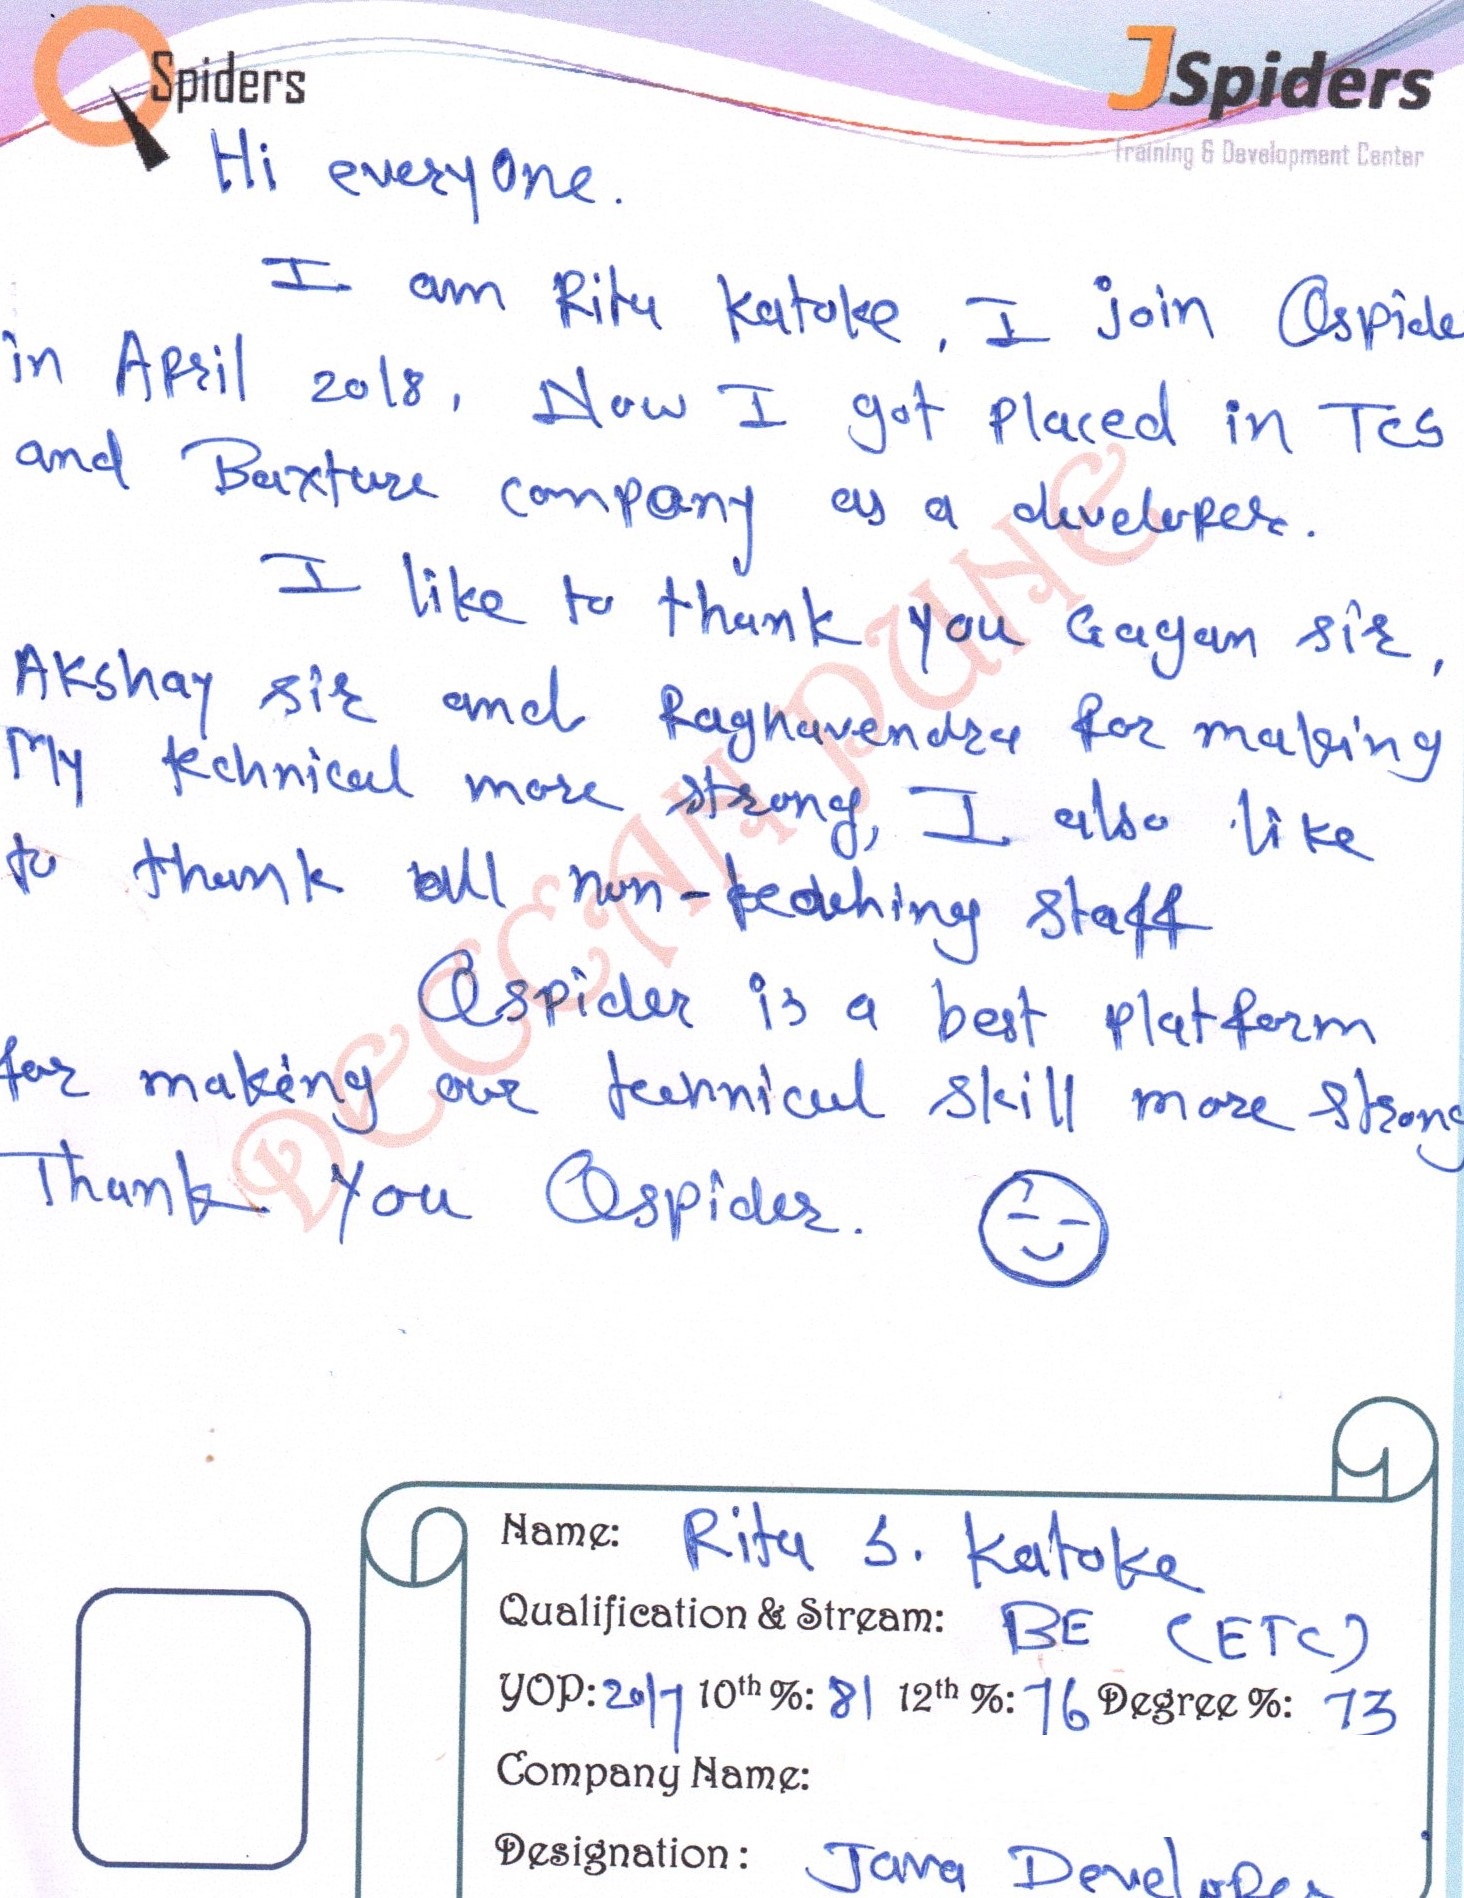 QSpiders
JSpiders
Training & Development Center
Hi everyone.
I am Ritu Katoke, I join Qspide
in April 2018, Now I got placed in TCS
and Baxture company as a developer.
I like to thank you Gagan sir,
Akshay sir and Raghavendra for making
My technical more strong, I also like
to thank all non-teaching staff
Qspider is a best platform
for making our technical skill more strong
Thank you Qspider.
DECCAN PUNE
Name: Ritu S. Katoke
Qualification & Stream: BE (ETC)
YOP: 2017 10th %: 81 12th %: 76 Degree %: 73
Company Name:
Designation: Java Developer